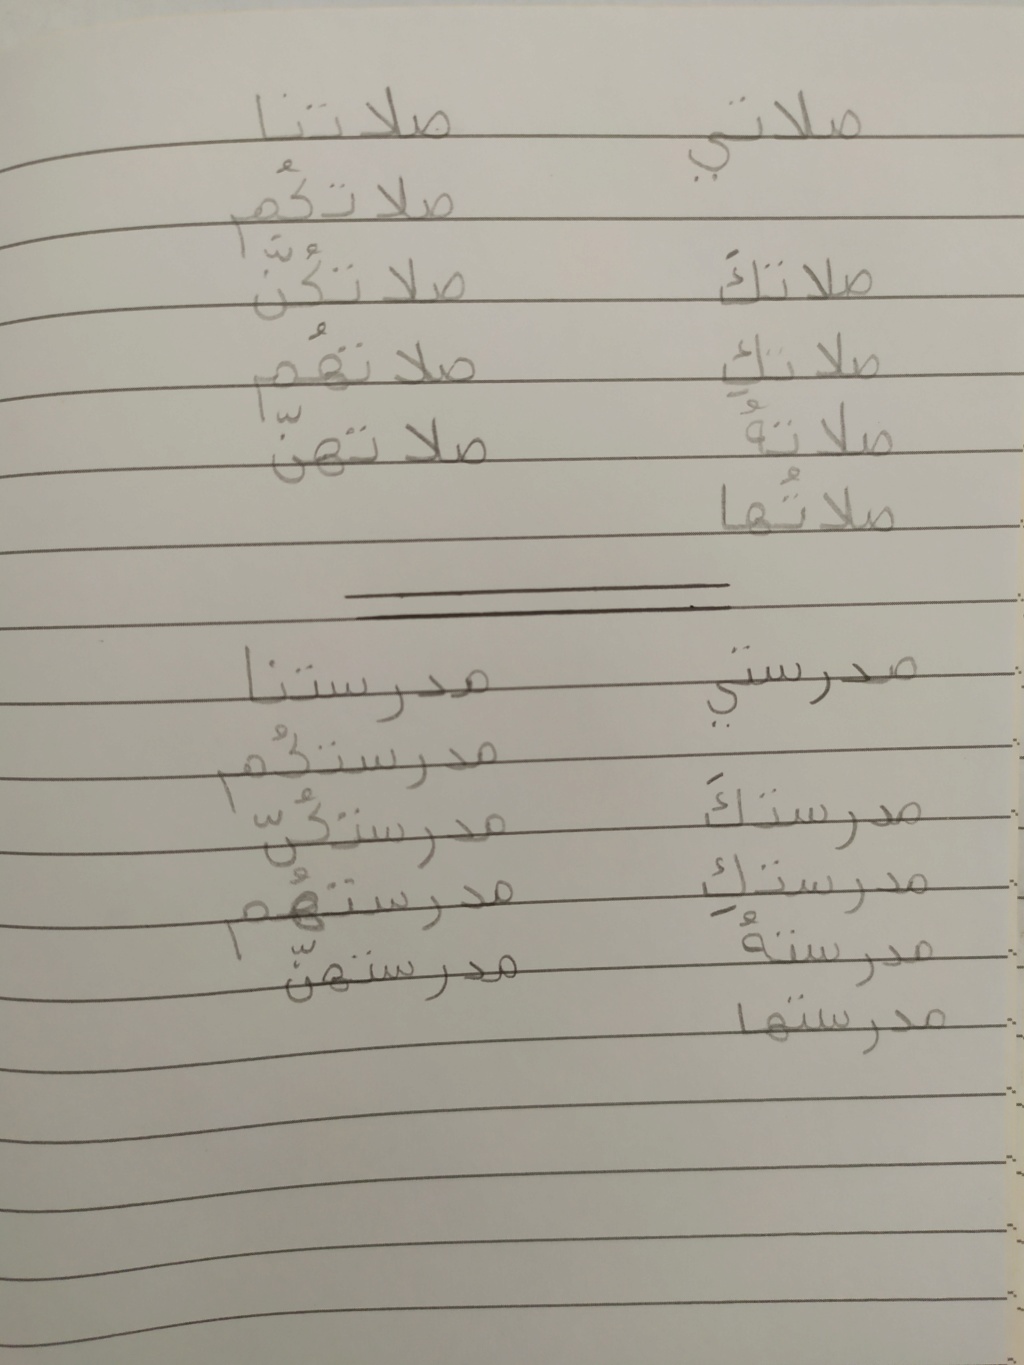 صلاتي صلاتنا
صلاتكُم
صلاتكَ صلاتكُنّ
صلاتكِ صلاتهُم
صلاتهُ صلاتهنّ
صلاتُها
مدرستي مدرستنا
مدرستكُم
مدرستكَ مدرستكُنّ
مدرستكِ مدرستهُم
مدرستهُ مدرستهنّ
مدرستها